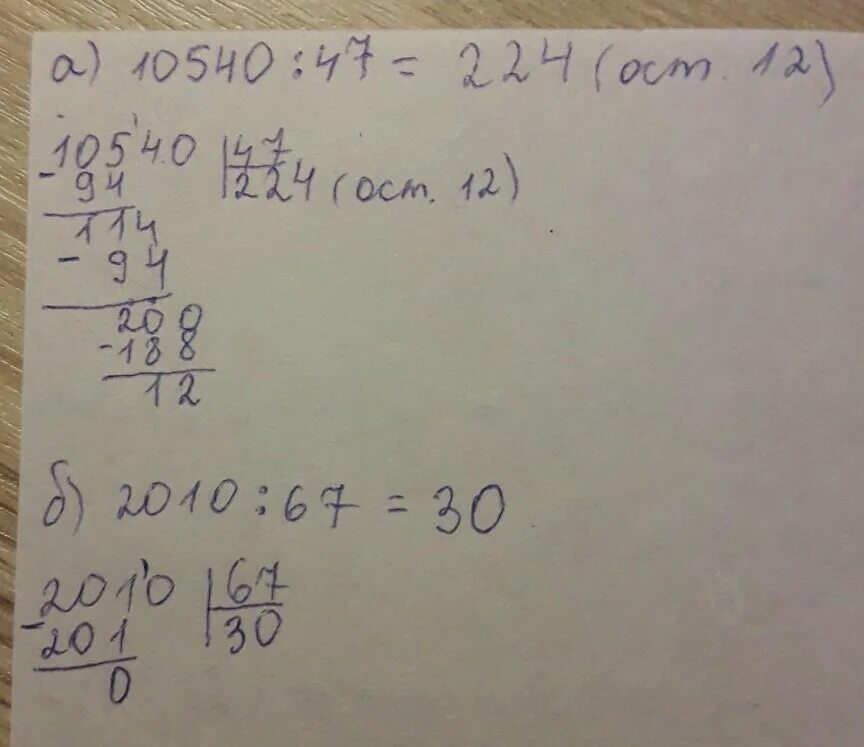 а) 10540 : 47 = 224 (ост. 12)
10540 | 47
- 94 | 224 (ост. 12)
114
- 94
200
- 188
12
б) 2010 : 67 = 30
2010 | 67
- 201 | 30
0